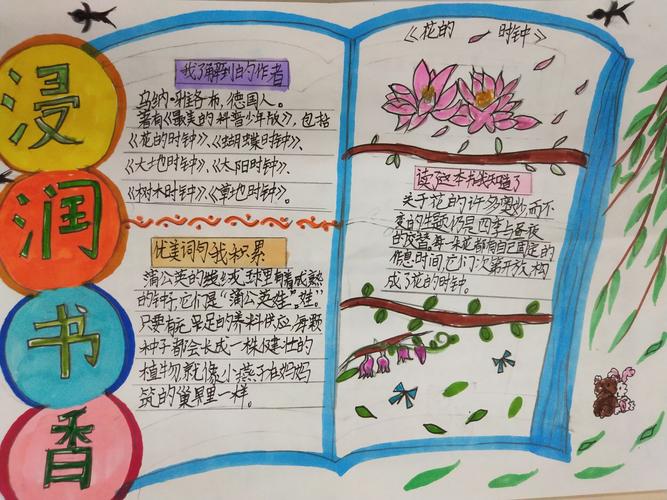 浸
润
书
香
我了解到的作者
乌纳·雅各布,德国人。
著有《最美的科普少年版》,包括
《花的时钟》、《蝴蝶时钟》、
《大地时钟》、《太阳时钟》、
《树木时钟》、《草地时钟》。
优美词句我积累
蒲公英的绒球里有着成熟
的种子,它们是“蒲公英娃娃”。
只要有充足的养料供应,每颗
种子都会长成一株健壮的
植物,就像小燕子在妈妈
筑的巢里一样。
《花的时钟》
读这本书我知道了
关于花的许多奥妙,而不
变的主题仍是四季与昼夜
的交替,每朵花都有自己固定的
作息时间,它们次第开放,构
成了花的时钟。